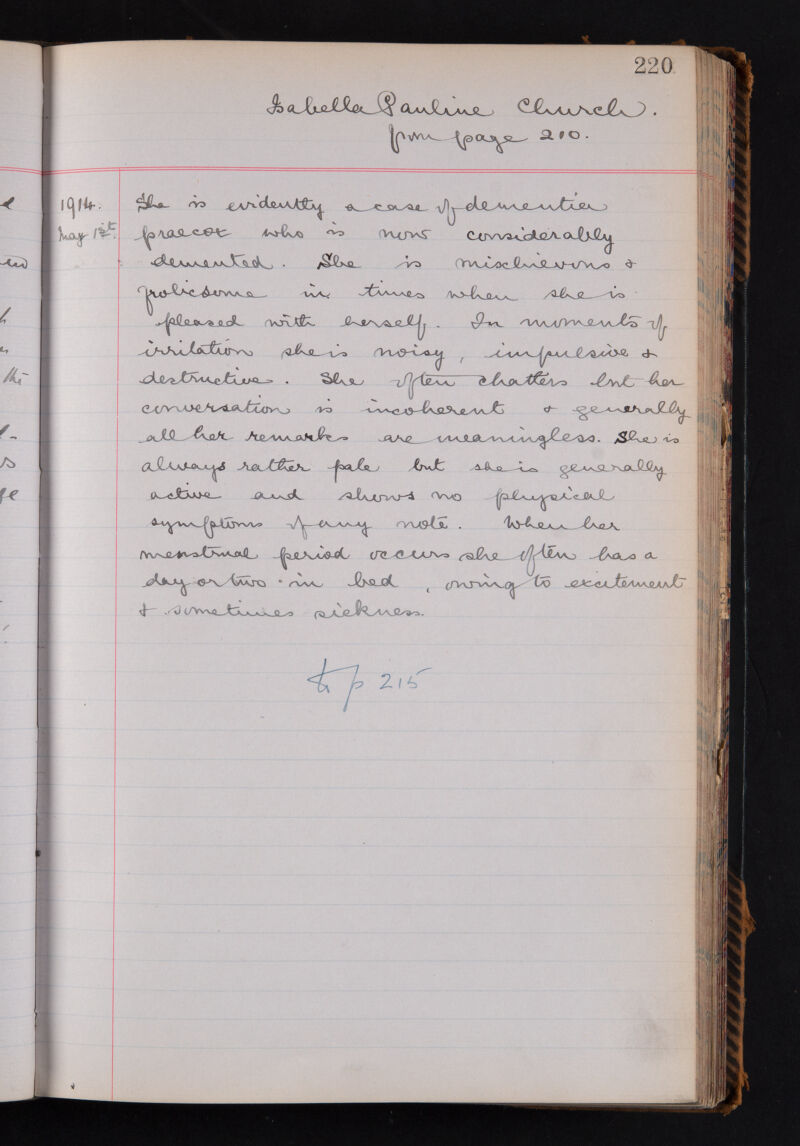 220
Isabella Pauline Church.
from page 210.
1914.
May 1st.
She is evidently a case of dementia
praecox who is now considerably
demented. She is mischievous &
frolicsome in times when she is
pleased with herself. In moments of
irritation she is noisy, impulsive &
destructive. She often chatters but her
conversation is incoherent & generally
all her remarks are meaningless. She is
always rather pale but she is generally
active and shows no physical
symptoms of any note. When her
menstrual period occurs she often has a
day or two in bed, owing to excitement
& sometimes sickness.
to p 215